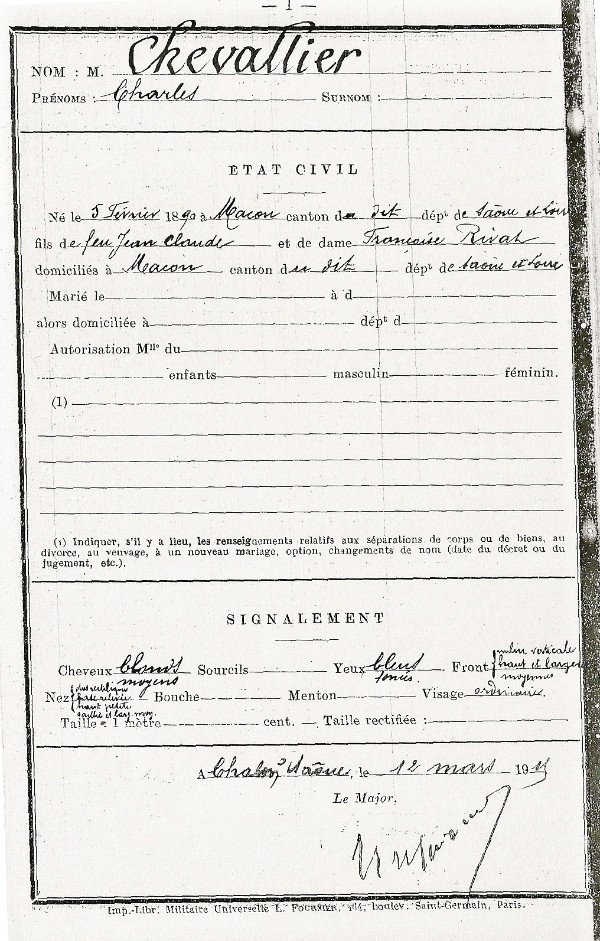 — 1 —
NOM : M. Chevallier
PRÉNOMS : Charles SURNOM :
ETAT CIVIL
Né le 5 Février 1890 à Macon canton du dit dépt de Saône et Loire
fils de feu Jean Claude et de dame Françoise Rivat
domiciliés à Macon canton du dit dépt de Saône et Loire
Marié le à d
alors domiciliée à dépt d
Autorisation Mlle du
enfants masculin féminin.
(1)
(1) Indiquer, s'il y a lieu, les renseignements relatifs aux séparations de corps ou de biens, au
divorce, au veuvage, à un nouveau mariage, option, changements de nom (date du décret ou du
jugement, etc.).
SIGNALEMENT
Cheveux blonds moyens Sourcils Yeux bleus foncés Front verticale haut et larges moyennes
Nez dos rectiligne haut petite saillie et larg. moy. Bouche Menton Visage ordinaire
Taille : 1 mètre cent. Taille rectifiée :
A Chalon s/ Saône, le 12 mars 19
Le Major,
Imp.-Libr. Militaire Universelle L. FOURNIER, 264, boulev. Saint-Germain, Paris.